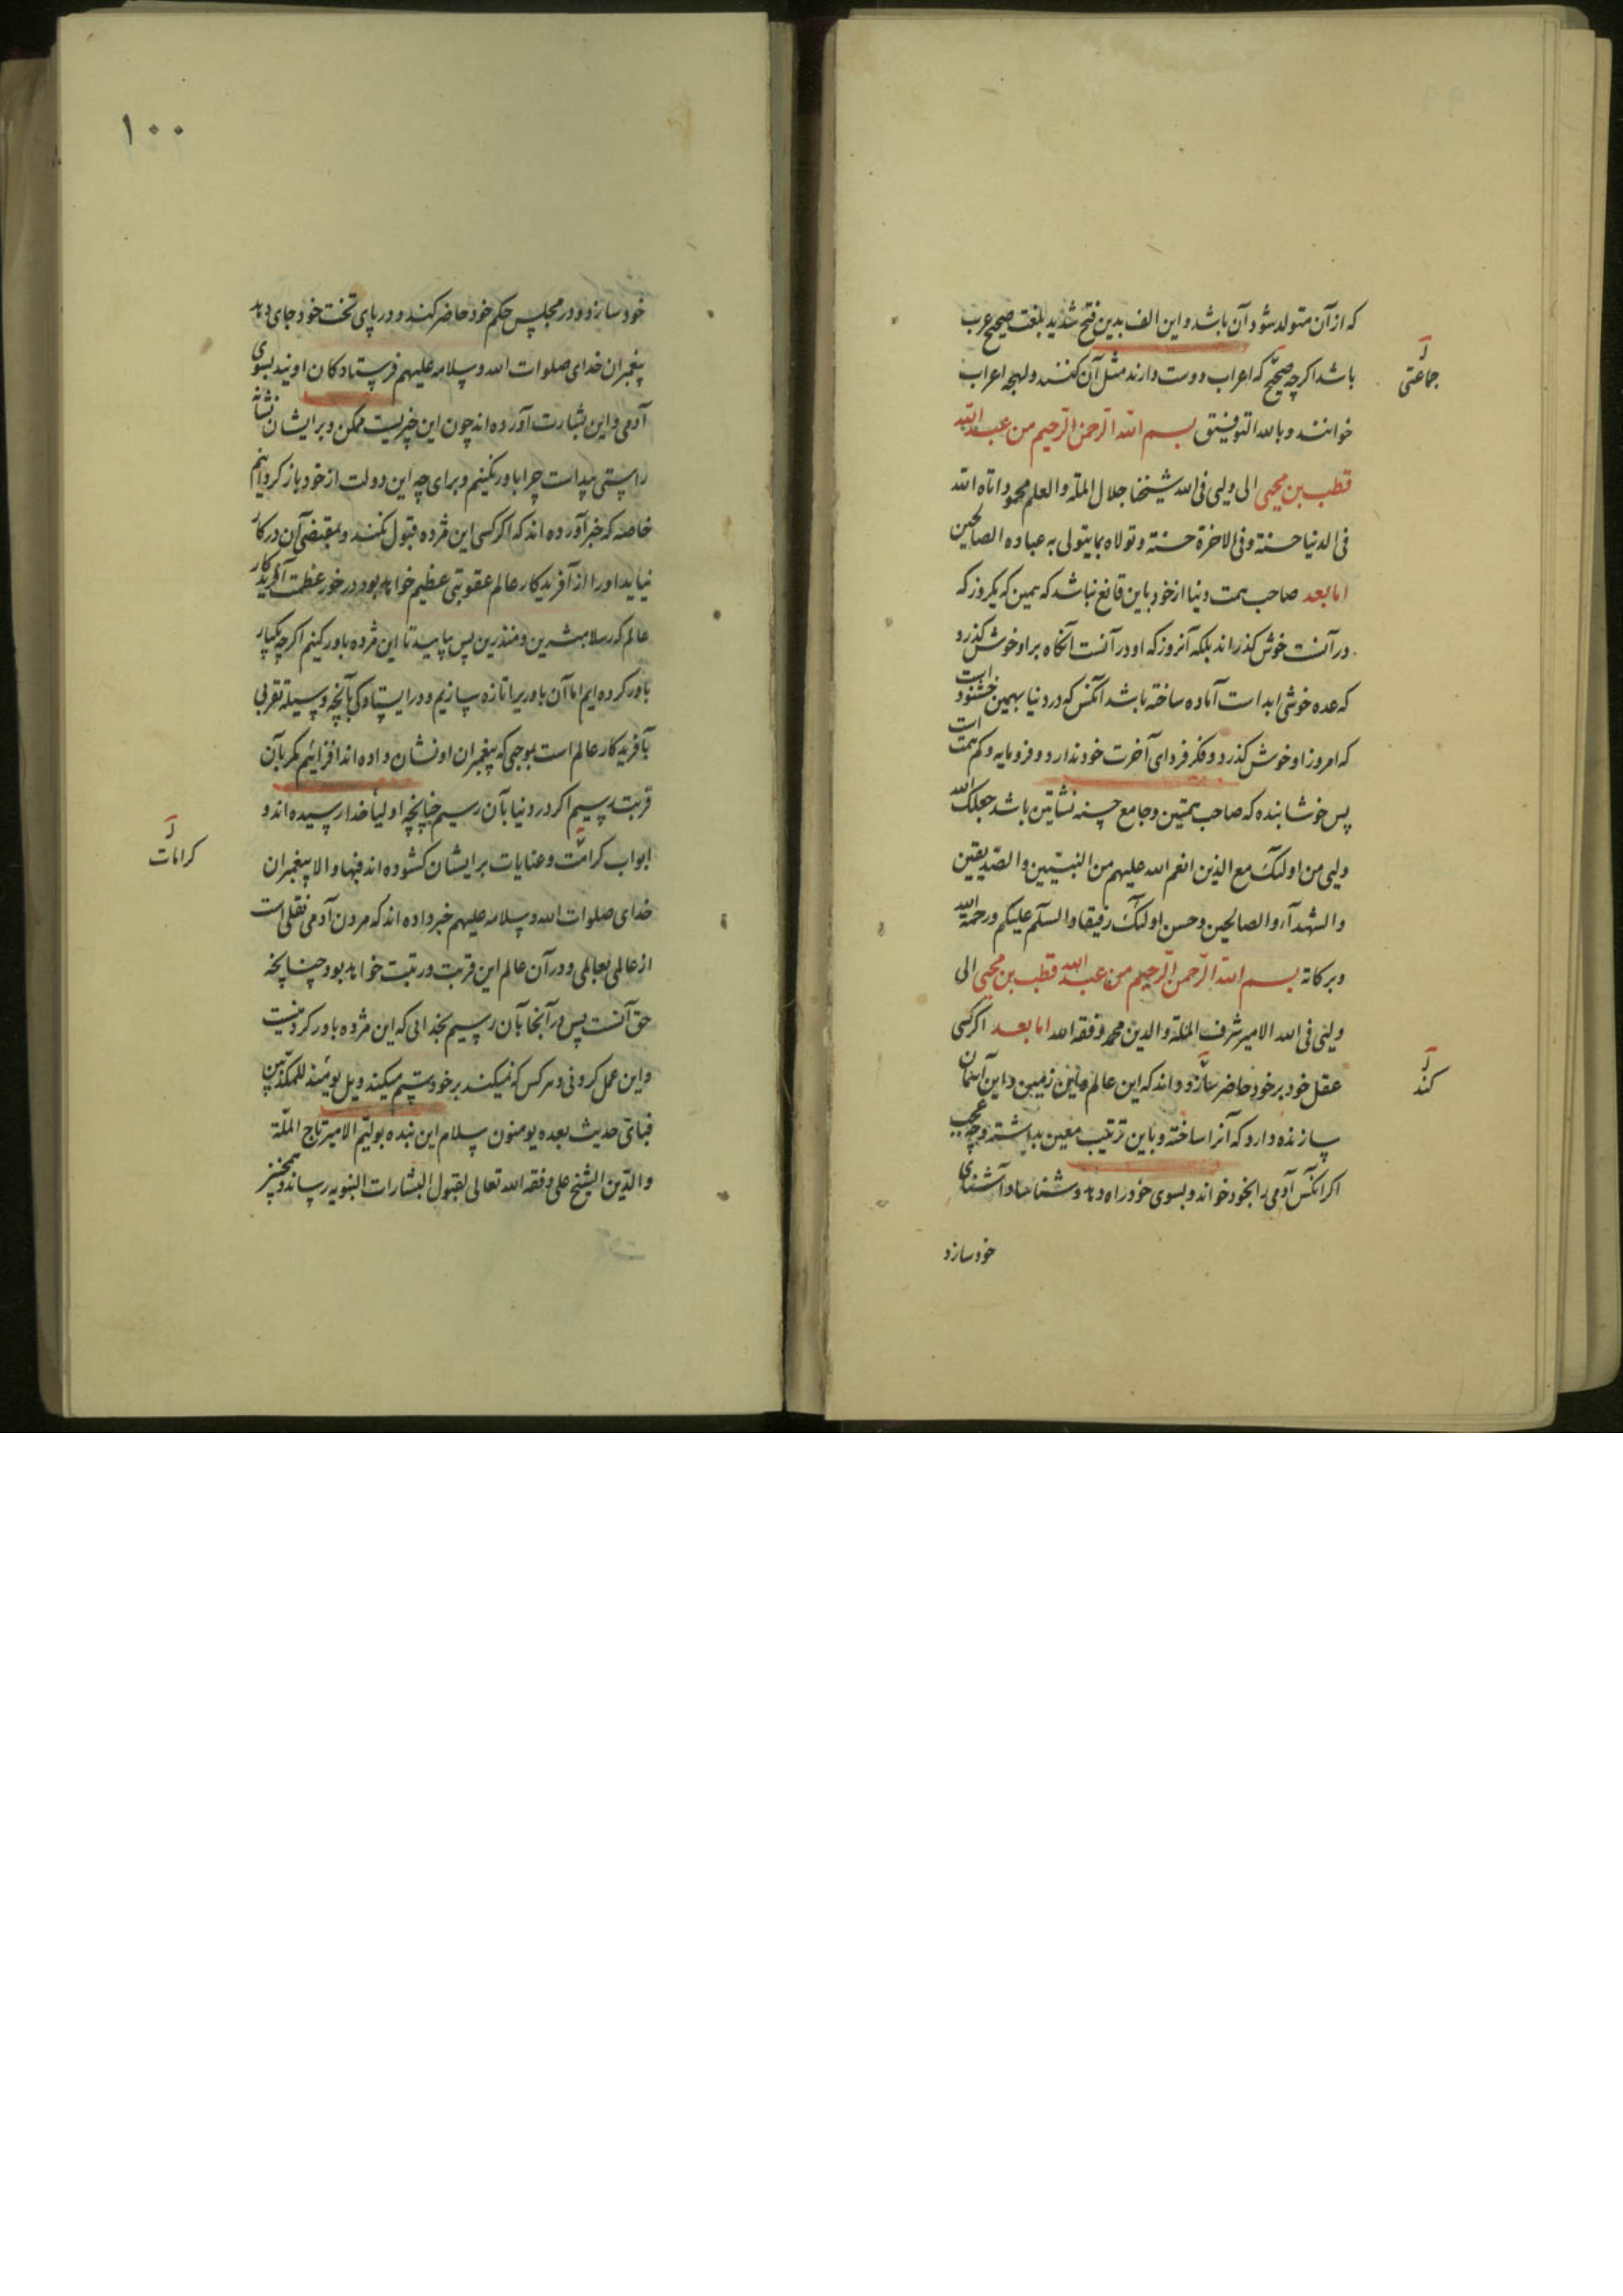 که از آن متولد شود آن باشد و این الف بدین فتح شدید بلغت صحیح عرب
باشد اگرچه صحیح که اعراب دوست دارند مثل آن کنند و لهجه اعراب
جماعتی
خوانند و بالله التوفیق بسم الله الرحمن الرحیم من عبد الله
قطب بن محیی الی ولیی فی الله شیخنا جلال الملة والعلم محمود اتاه الله
فی الدنیا حسنة وفی الاخرة حسنة وتولاه بما یتولی به عباده الصالحین
اما بعد صاحب همت دنیا از خود باین قانع نباشد که همین که یکروز که
در آنست خوش گذراند بلکه آنروز که او در آنست آنگاه بر او خوش گذرد
که عده خوشی ابد است آماده ساخته باشد آنکس که در دنیا بهمین خشنود است
که امروز او خوش گذرد و فکر فردای آخرت خود ندارد و فرومایه و کم همت است
پس خوشا بنده که صاحب همتین و جامع حسنه نشاتین باشد جعلک الله
ولیی من اولئک مع الذین انعم الله علیهم من النبیین والصدیقین
والشهدآء والصالحین وحسن اولئک رفیقا والسلم علیکم ورحمة الله
وبرکاته بسم الله الرحمن الرحیم من عبد الله قطب بن محیی الی
ولیی فی الله الامیر شرف الملة والدین محمد وفقه الله اما بعد اگر کسی
عقل خود بر خود حاضر سازد و داند که این عالم ماین زمین و این آسمان
کند
سازنده دارد که آنرا ساخته و باین ترتیب معین بداشته و چه عجب
اگر آنکس آدمی را بخود خواند و بسوی خود راه دهد و شناسا و آشنای
خود سازد
۱۰۰
خود سازد و در مجلس حکم خود حاضر کند و در پای تخت خود جای دهد
پیغمبران خدای صلوات الله وسلامه علیهم فرستادگان اویند بسوی
آدمی و این بشارت آورده اند چون این خبریست ممکن و بر ایشان نشانه
راستی پیداست چرا باور نکنیم و برای چه این دولت از خود باز گردانیم
خاصه که خبر آورده اند که اگر کسی این مژده قبول نکند و بمقتضی آن در کار
نیاید او را از آفریدکار عالم عقوبتی عظیم خواهد بود در خور عظمت آفریدکار
عالم که رسلا مبشرین و منذرین پس بیایید تا این مژده باور کنیم اگرچه یکبار
باور کرده ایم اما آن باور را تازه سازیم و در ایستادگی بآنچه وسیله تقربی
بآفریدکار عالم است بموجبی که پیغمبران او نشان داده اند افزائیم مگر بآن
قربت رسیم اگر در دنیا بآن رسیم چنانچه اولیأ خدا رسیده اند و
ابواب کرامت و عنایات بر ایشان کشوده اند فبها و الا پیغمبران
کرامات
خدای صلوات الله وسلامه علیهم خبر داده اند که مردن آدمی نقلی است
از عالمی بعالمی و در آن عالم این قربت و رتبت خواهد بود چنانچه
حق آنست پس در آنجا بآن رسیم بخدایی که این مژده باور کردنیست
و این عمل کردنی و هر کس که نمیکند بر خود ستم میکند ویل یومئذ للمکذبین
فبای حدیث بعده یومنون سلام این بنده بولیم الامیر تاج الملة
والدین الشیخ علی وفقه الله تعالی لقبول البشارات النبویه رسانند و همچنین